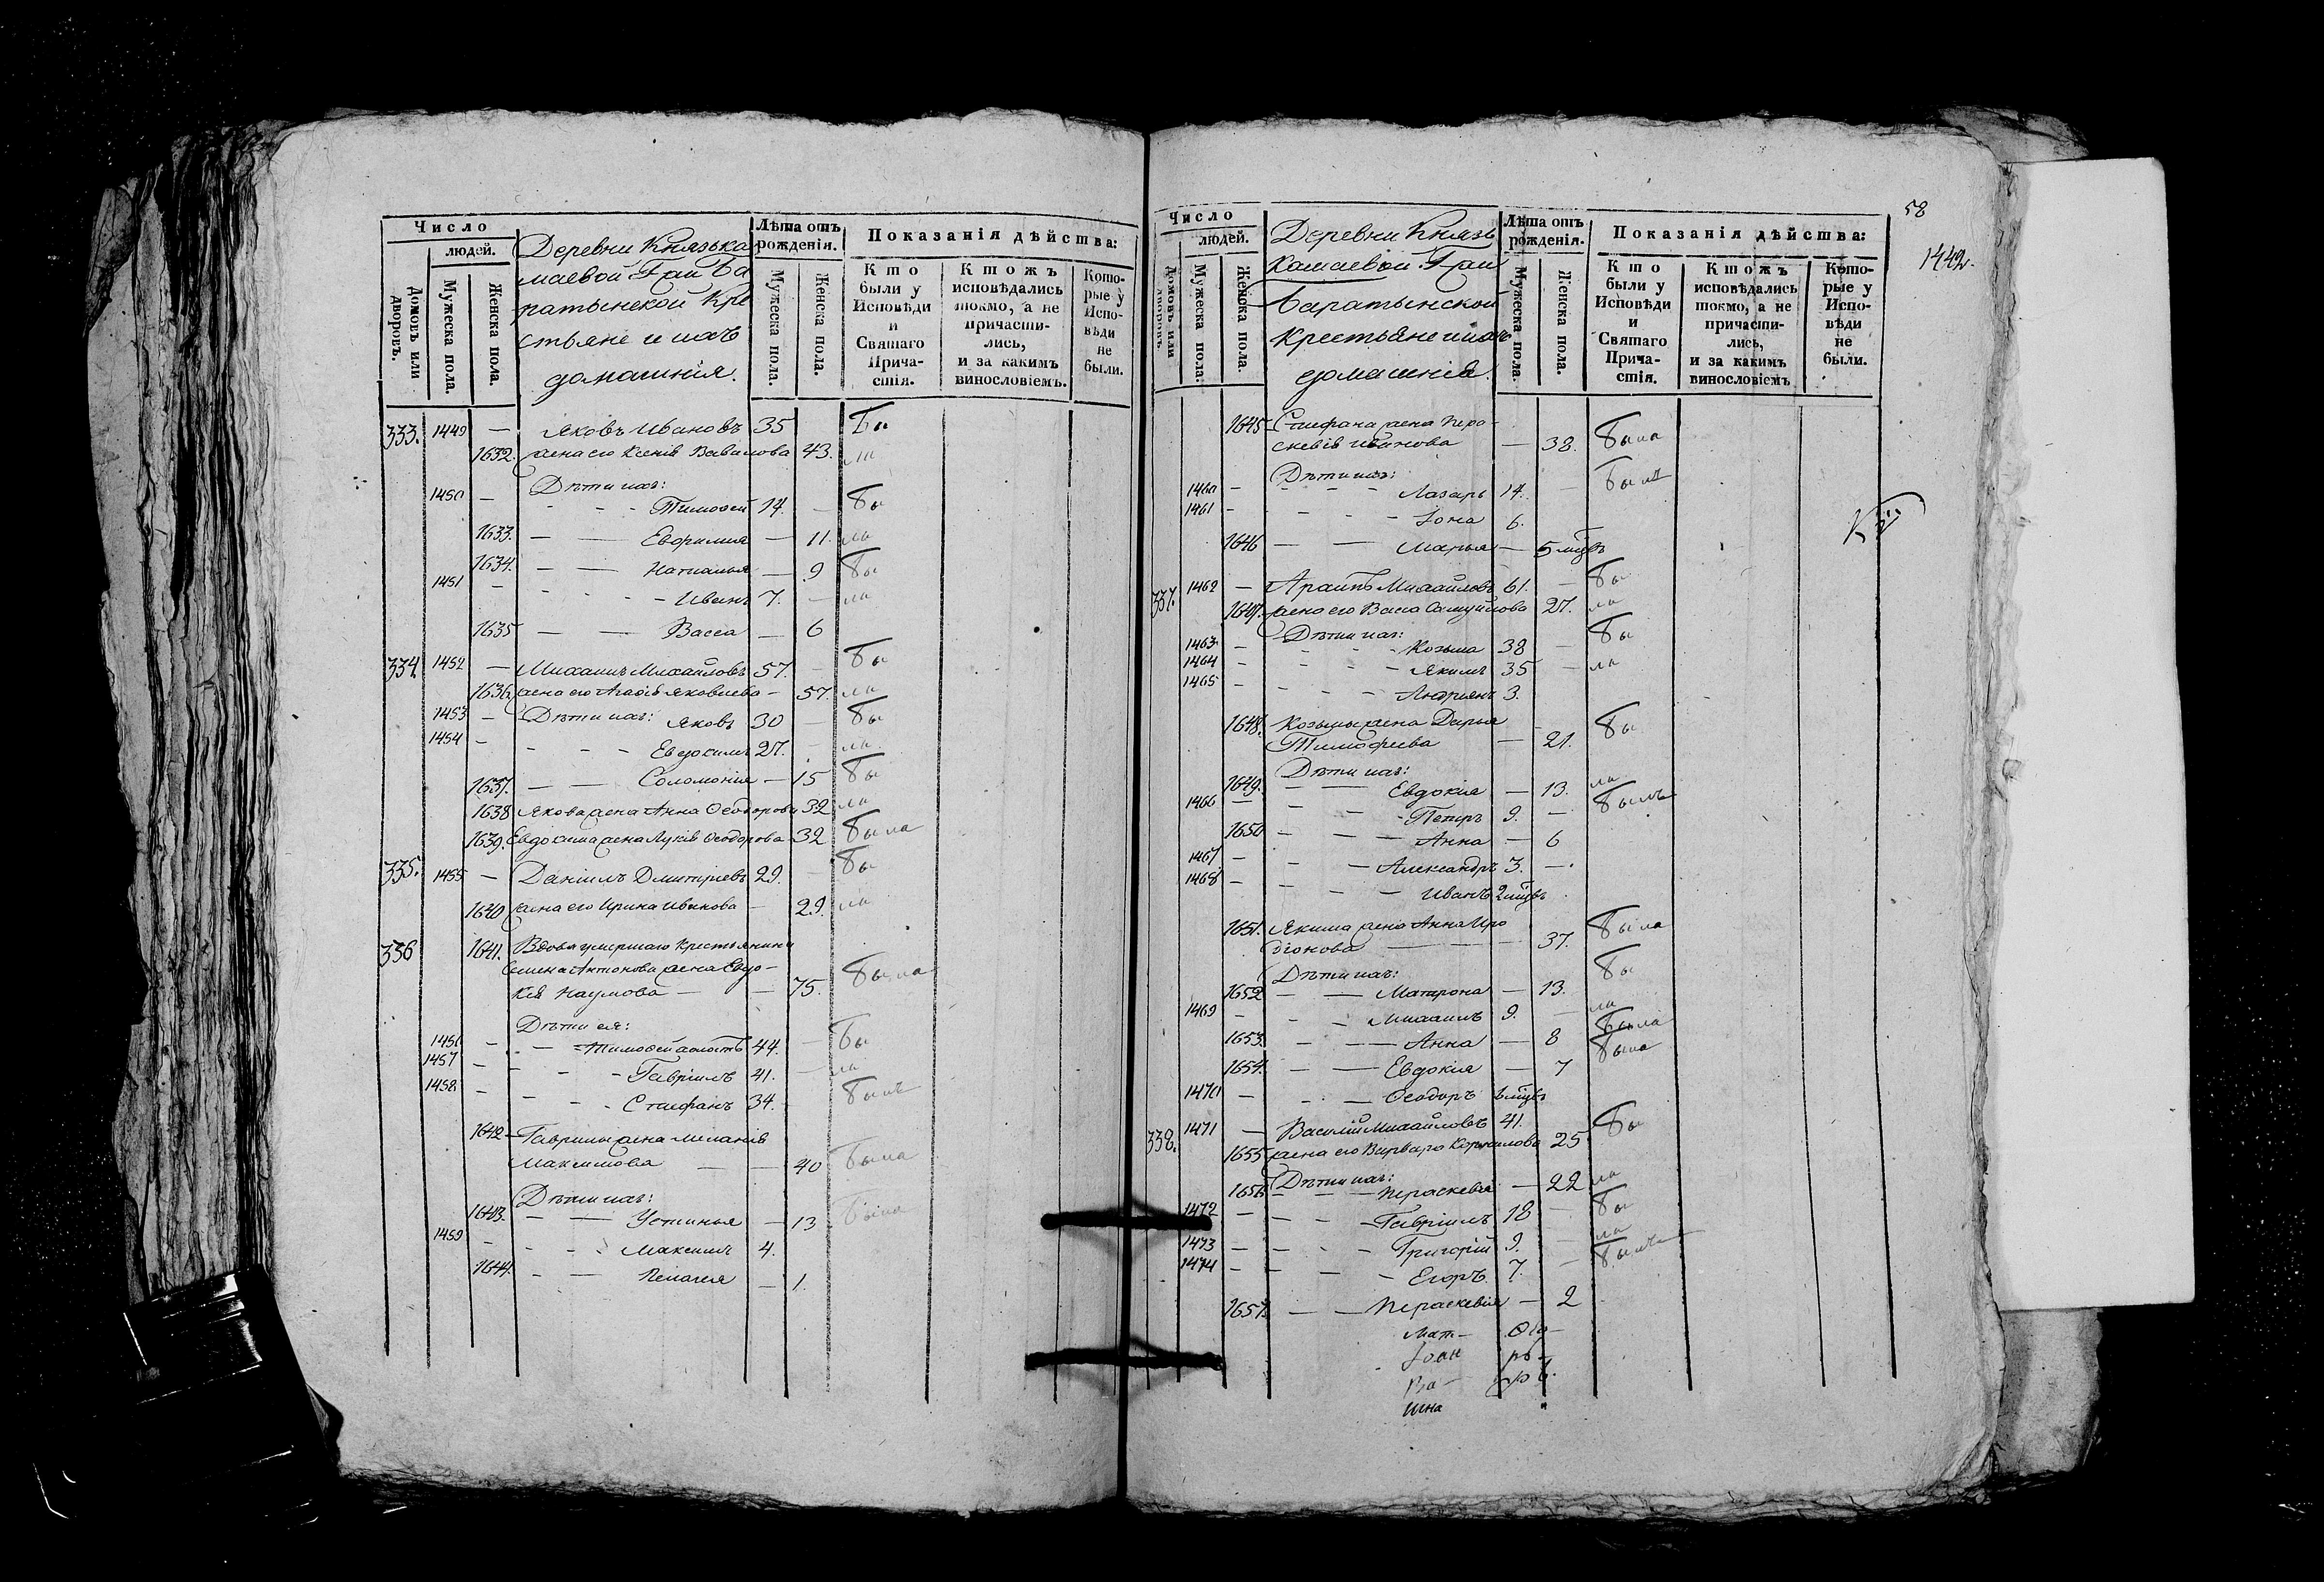 Число
людей.
Домовъ или дворовъ.
Мужеска пола.
Женска пола.
Деревни Князька
маевой Граи Ба
ратынской Кре
стьяне и ихъ
домашнія.
Лѣта отъ рожденія.
Мужеска пола.
Женска пола.
Показанія дѣйства:
Кто были у Исповѣди и Святаго Причастія.
Ктожъ исповѣдались токмо, а не причастились, и за какимъ винословіемъ.
Которые у Исповѣди не были.
333. 1449 — Яковъ Ивановъ 35 Бы
1632. жена его Ксенія Вавилова 43. ла
Дѣти ихъ:
1450 — - - - Тимофей 14. — бы
1633. — — Евфимия — 11. ла
1634. — — Наталья — 9 бы
1451 — - - - Иванъ 7. — ла
1635 — — Васса — 6
334 1452 — Михаилъ Михайловъ 57. — бы
1636. жена его Агафія Яковлева — 57. ла
1453 — Дѣти ихъ: Яковъ 30 — бы
1454 — - - - Евдокимъ 27. — ла
1637. — — Соломонія — 15 бы
1638 Якова жена Анна Феодорова 32 ла
1639. Евдокима жена Лукія Феодорова 32 была
335. 1455 — Даніилъ Дмитріевъ 29. — бы
1640 жена его Ирина Иванова — 29. ла
336 1641. Вдова умершаго крестьянина
Семена Антонова жена Евдо-
кія Наумова — — 75. была
Дѣти ея:
1456 — - — Тимофей холостъ 44. — бы
1457 — - - - Гавріилъ 41. — ла
1458. — - - - Стефанъ 34. былъ
1642 — Гаврилы жена Меланія
Максимова — — 40 была
Дѣти ихъ:
1643. — — Устинья — 13 была
1459 — - - - Максимъ 4.
1644. - — Пелагея — 1.
58
1442.
Число
людей.
Домовъ или дворовъ.
Мужеска пола.
Женска пола.
Деревни Князь
Камаевой Граи
Баратынской
крестьяне и ихъ
домашнія.
Лѣта отъ рожденія.
Мужеска пола.
Женска пола.
Показанія дѣйства:
Кто были у Исповѣди и Святаго Причастія.
Ктожъ исповѣдались токмо, а не причастились, и за какимъ винословіемъ
Которые у Исповѣди не были.
1645 Стефана жена Пера-
скевія Иванова — 38. была
Дѣти ихъ:
1460 — - - - Лазарь 14. — былъ
1461 — - - - Іона 6.
1646 — — Марья — 5 мцвъ
337. 1462 — Архипъ Михайловъ 61. — бы
1647. жена его Васса Самуилова 27. ла
Дѣти ихъ:
1463 — - - - Козьма 38 — бы
1464 — - - - Якимъ 35 — ла
1465 — - - - Андріянъ 3.
1648. Козьмы жена Дарья
Тимофеева — 21. бы
Дѣти ихъ:
1649. — — Евдокія — 13. ла
1466 — - - - Петръ 9. — былъ
1650 — - — Анна — 6
1467. — - — Александръ 3. —
1468 — - - - Иванъ 2 мцвъ
1651. Якима жена Анна Иро
діонова — — 37. была
Дѣти ихъ:
1652 — — Матрона — 13. бы
1469 — - - Михаилъ 9. — ла
1653. — — Анна — 8 была
1654. — — Евдокія — 7 была
1470 — - - Феодоръ мцвъ
338. 1471 — Василій Михайловъ 41. бы
1655 жена его Варвара Корнилова 25
Дѣти ихъ:
1656 — — Пераскевія — 22 ла
1472 — - - - Гавріилъ 18 — бы
1473 — - - - Григорій 9. — ла
1474 — - - - Егоръ 7. — былъ
1657. — — Пераскевія — 2
Мат-
Іоан
Ва-